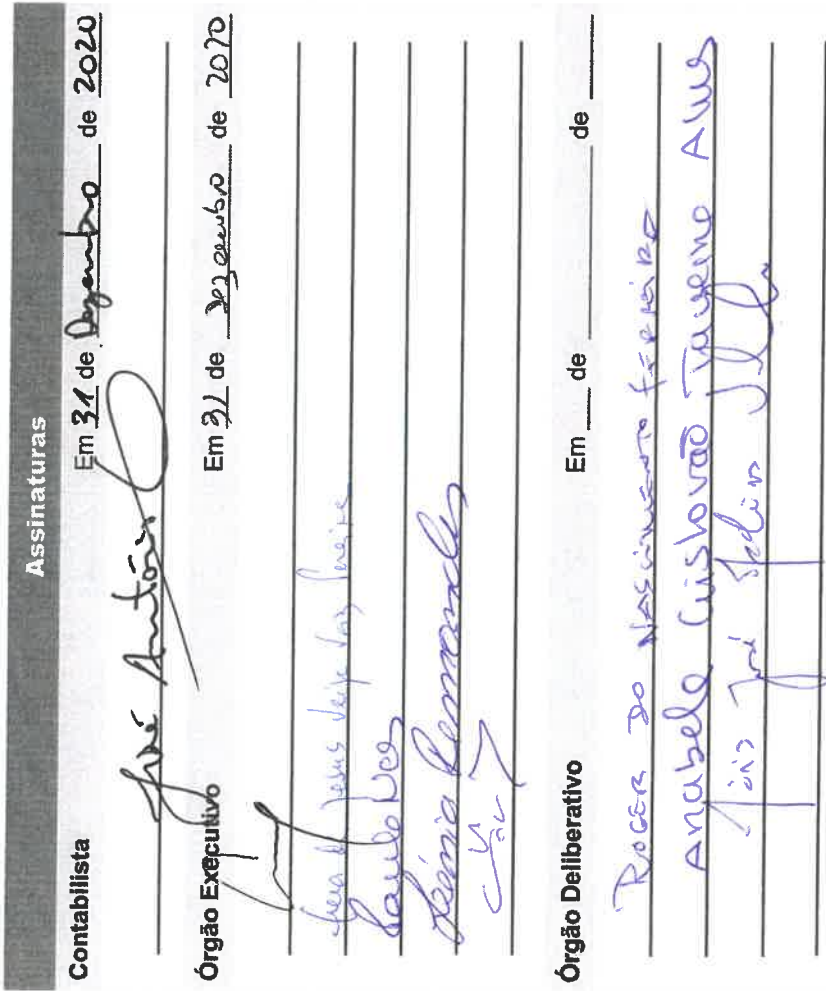 Assinaturas
Contabilista
Em 31 de Dezembro de 2020
José António
Órgão Executivo
Em 31 de Dezembro de 2020
de Jesus Veiga Vaz Pereira
Paulo Vaz
Fernandes
Órgão Deliberativo
Em ___ de ___ de ___
ROGER DO NASCIMENTO FERREIRO
Anabela Cristovão Alves
José